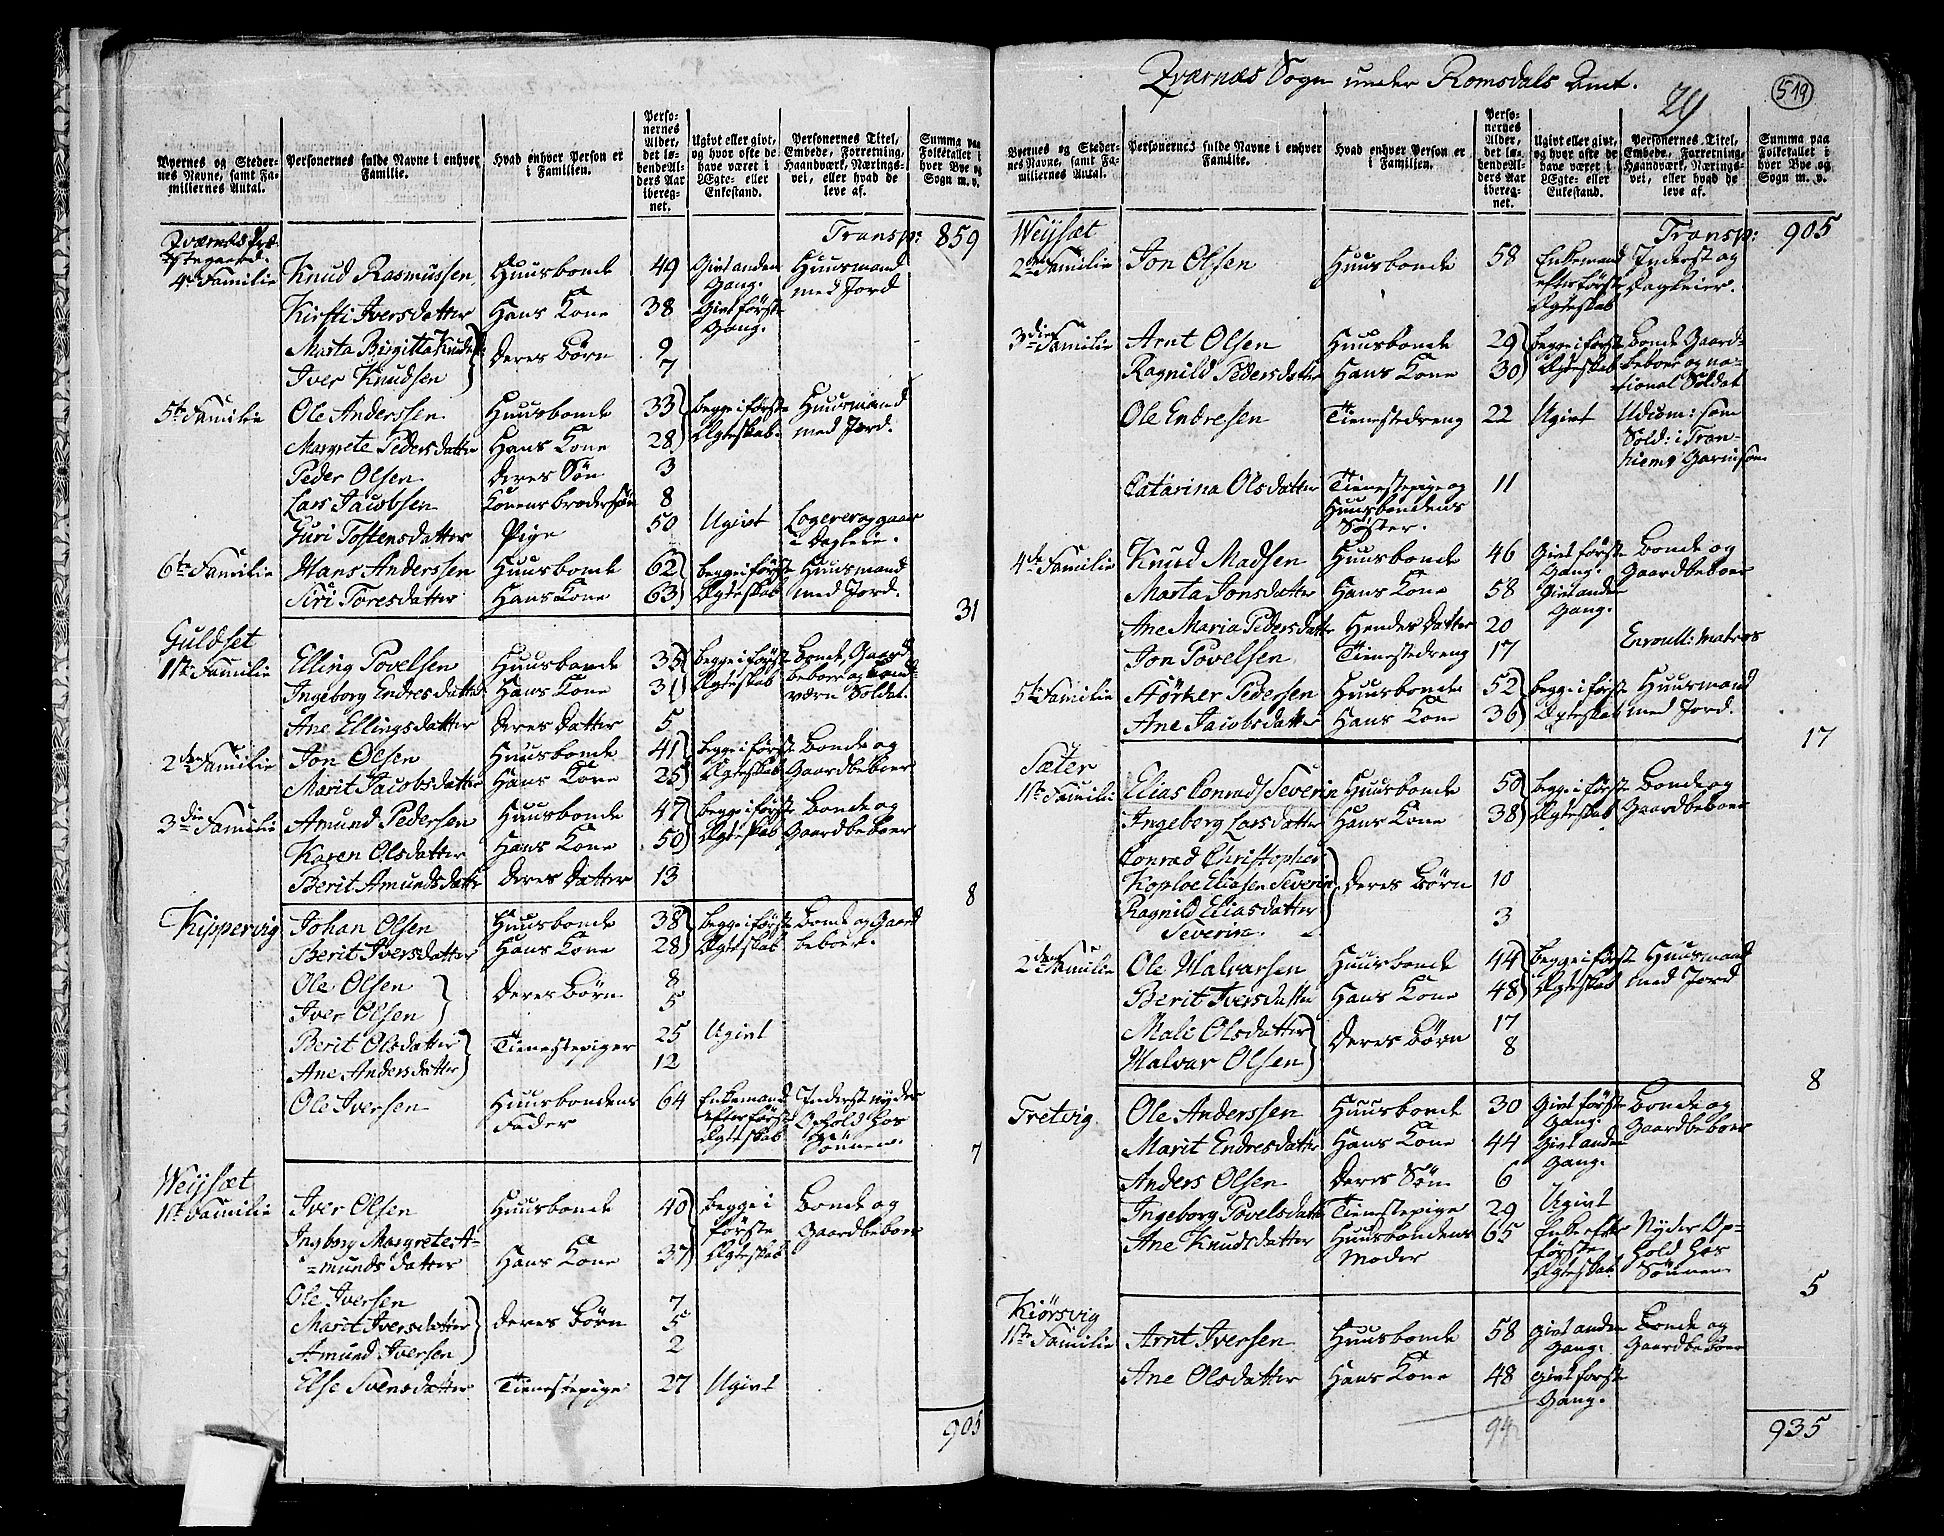 Byernes og Steder-
nes Navne, samt Fa-
miliernes Antal.
Personernes fulde Navne i enhver
Familie.
Hvad enhver Person er
i Familien.
Perso-
nernes
Alder,
det lø-
bende Al-
ders Aar
iberegn-
net.
Ugivt eller givt,
og hvor ofte de
have været i
Ægte- eller
Enkestand.
Personernes Titel,
Embede, Forretning,
Haandværk, Nærings-
vei, eller hvad de
leve af.
Summa paa
Folketallet i
hver Bye og
Sogn m. v.
Transp: 859
4de Familie Knud Rasmussen Huusbonde 49 Givt anden Huusmand
Gang. med Jord
Kirsti Iversdatter Hans Kone 38 Givt første
Gang.
Marta Birgitta Knuds 9
Deres Børn
Iver Knudsen 7
5te Familie Ole Anderssen Huusbonde 33 begge i første Huusmand
Margrete Pedersdatter Hans Kone 28 Ægteskab. med Jord.
Peder Olsen Deres Søn 3
Lars Jacobsen Konens brodersøn 8
Guri Tostensdatter Pige 50 Ugivt Logerer og gaar
i Dagleie.
6te Familie Hans Anderssen Huusbonde 62 begge i første Huusmand
Siri Toresdatter Hans Kone 63 Ægteskab med Jord.
31
Guldset
1ste Familie Elling Povelsen Huusbonde 35 begge i første Bonde, Gaard
Ingeborg Endresdatter Hans Kone 31 Ægteskab beboer og Land-
værn Soldat.
Ane Ellingsdatter Deres Datter 5
2den Familie Jon Olsen Huusbonde 41 begge i første Bonde og
Marit Jacobsdatter Hans Kone 25 Ægteskab Gaardbeboer
3die Familie Amund Pedersen Huusbonde 47 begge i første Bonde og
Karen Olsdatter Hans Kone 50 Ægteskab Gaardbeboer
Berit Amundsdatter Deres Datter 13
8
Kippervig Johan Olsen Huusbonde 38 begge i første Bonde og Gaard
Berit Iversdatter Hans Kone 28 Ægteskab beboer.
Ole Olsen 8
Deres Børn
Iver Olsen 5
Berit Olsdatter 25 Ugivt
Tienestepiger
Ane Andersdatter 12
Ole Iversen Huusbondens 64 Enkemand Inderst nyder
Fader efter første Ophold hos
Ægteskab Sønnen.
7
Weysæt
1ste Familie Iver Olsen Huusbonde 40 begge i Bonde og
første Gaardbeboer
Ingborg Margrete A-
munds datter Hans Kone 37 Ægteskab
Ole Iversen 7
Marit Iversdatter Deres Børn 5
Amund Iversen 2
Else Svensdatter Tienestepige 27 Ugivt
905
Qværnæs Sogn under Romsdals Amt.
29
519
Byernes og Steder-
nes Navne, samt Fa-
miliernes Antal.
Personernes fulde Navne i enhver
Familie.
Hvad enhver Person er
i Familien.
Perso-
nernes
Alder,
det lø-
bende Al-
ders Aar
iberegn-
net.
Ugivt eller givt,
og hvor ofte de
have været i
Ægte- eller
Enkestand.
Personernes Titel,
Embede, Forretning,
Haandværk, Nærings-
vei, eller hvad de
leve af.
Summa paa
Folketallet i
hver Bye og
Sogn m. v.
Weysæt Transp: 905
2den Familie Jon Olsen Huusbonde 58 Enkemand Inderst og
efter første Dagleier.
Ægteskab
3die Familie Arnt Olsen Huusbonde 29 begge i første Bonde Gaard-
Ragnild Pedersdatter Hans Kone 30 Ægteskab beboer og na-
tional Soldat
Ole Endresen Tienestedreng 22 Ugivt Udcom: som
Sold: i Tron-
hiems Garnison
Catarina Olsdatter Tienestepige og 11
Huusbondens
Søster.
4de Familie Knud Madsen Huusbonde 46 Givt første Bonde og
Gang. Gaardbeboer
Marta Jonsdatter Hans Kone 58 Givt anden
Gang.
Ane Maria Pedersdatter Hendes Datter 20
Jon Povelsen Tienestedreng 17 Enroull: Matros
5te Familie Størker Pedersen Huusbonde 52 begge i første Huusmand
Ane Jacobsdatter Hans Kone 36 Ægteskab med Jord.
17
Sæter
1ste Familie Elias Conrads Severin Huusbonde 50 begge i første Bonde og
Ingeborg Larsdatter Hans Kone 38 Ægteskab Gaardbeboer
Conrad Christopher
Koploe Eliasen Severin Deres Børn 10
Ragnild Eliasdatter 3
Severin.
2den Familie Ole Halvarsen Huusbonde 44 begge i første Huusmand
Berit Iversdatter Hans Kone 48 Ægteskab med Jord
Mali Olsdatter 17
Deres Børn
Halvar Olsen 8
8
Tretvig Ole Anderssen Huusbonde 30 Givt første Bonde og
Gang. Gaardbeboer
Marit Endresdatter Hans Kone 44 Givt anden
Gang.
Anders Olsen Deres Søn 6
Ingeborg Povelsdatter Tienestepige 29 Ugivt
Ane Knudsdatter Huusbondens 65 Enke efter Nyder Op-
Moder første hold hos
Ægteskab Sønnen
5
Kiørsvig
1ste Familie Arnt Iversen Huusbonde 58 Givt anden Bonde og
Gang. Gaardbeboer
Ane Olsdatter Hans Kone 48 Givt første
Gang.
935